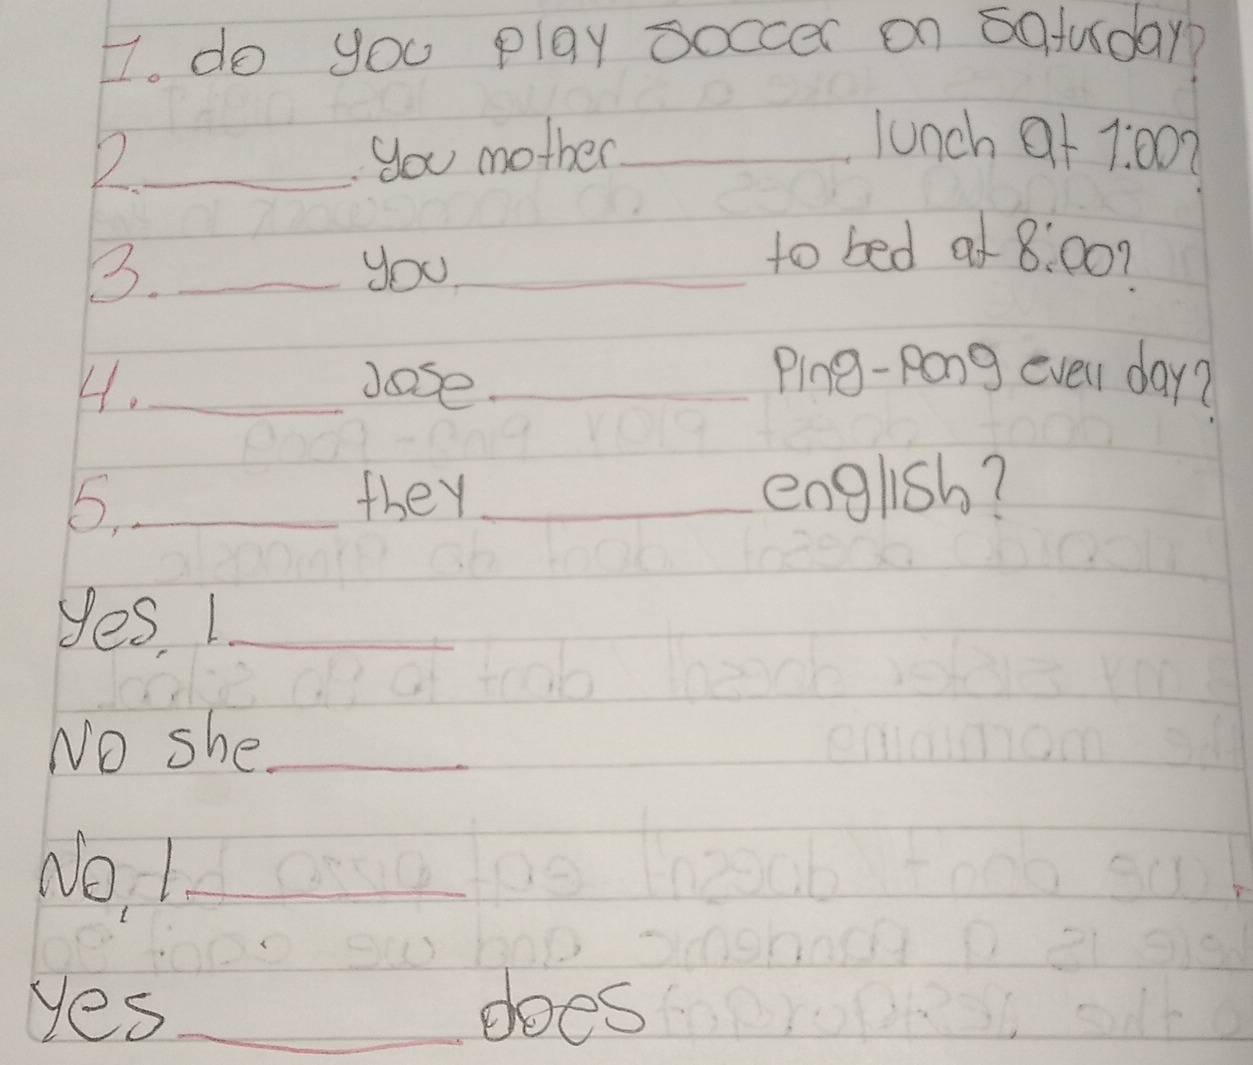 1. do you play soccer on saturday?
2. ______ you mother ______ lunch at 1:00?
3. ______ you ______ to bed at 8:00?
4. ______ Jose ______ Ping-Pong every day?
5. ______ they ______ english?
yes, I ______
No she ______
No, I ______
yes ______ does